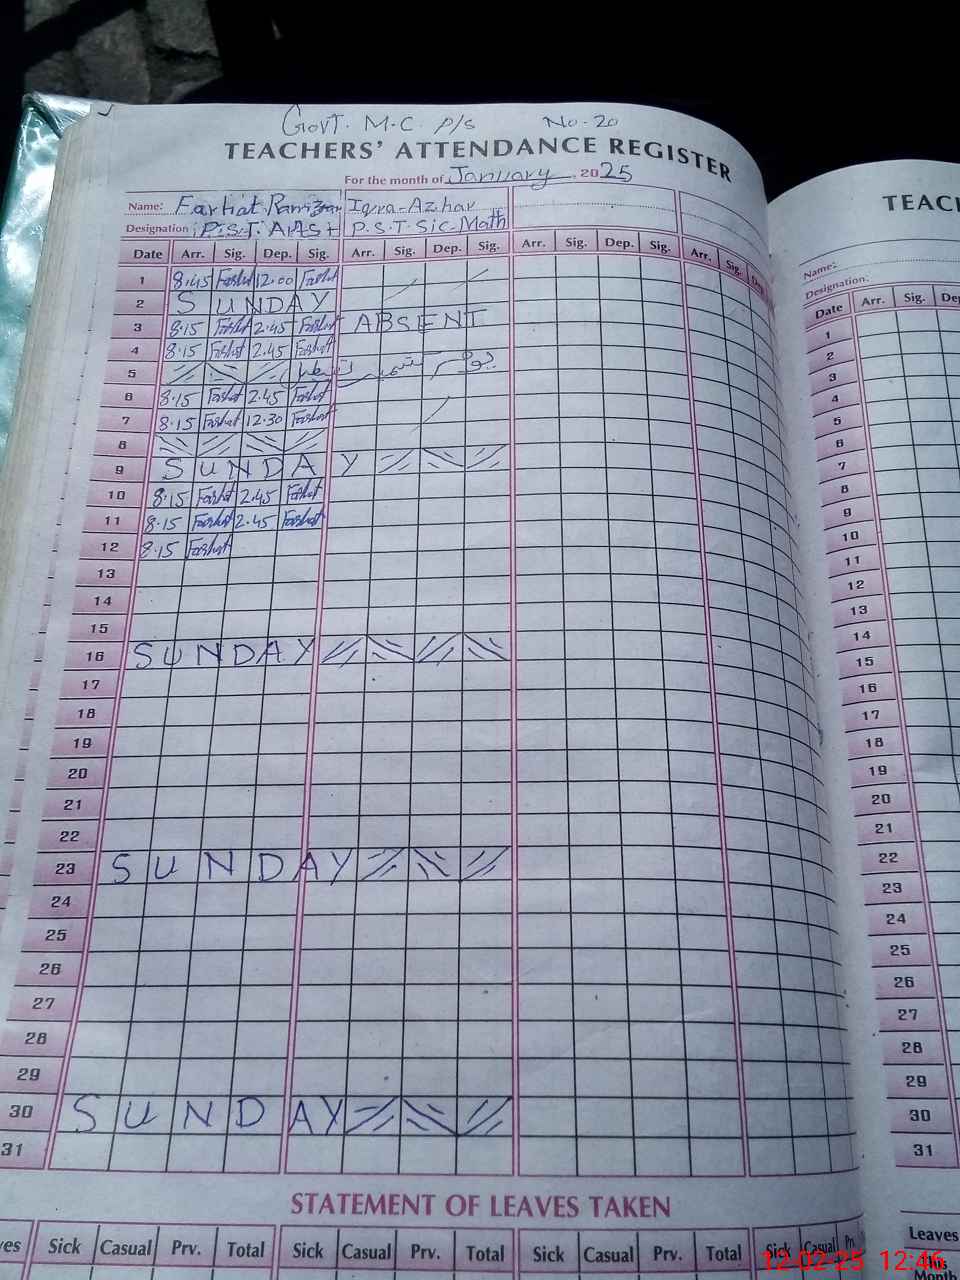 Govt. M.C. P/S No-20
TEACHERS' ATTENDANCE REGISTER
For the month of January, 2025
Name: Farhat Iqra-Azhar
Designation P.S.T P.S.T Sic. Math
Date Arr. Sig. Dep. Sig. Arr. Sig. Dep. Sig. Arr. Sig. Dep. Sig. Arr. Sig. Dep.
1 8.45 Farhat 12.00 Farhat
2 SUNDAY
3 8.15 Farhat 2.45 Farhat ABSENT
4 8.15 Farhat 2.45 Farhat
5 یوم کشمیر
6 8.15 Farhat 2.45 Farhat
7 8.15 Farhat 12.30 Farhat
8
9 SUNDAY
10 8.15 Farhat 2.45 Farhat
11 8.15 Farhat 2.45 Farhat
12 8.15 Farhat
13
14
15
16 SUNDAY
17
18
19
20
21
22
23 SUNDAY
24
25
26
27
28
29
30 SUNDAY
31
STATEMENT OF LEAVES TAKEN
Sick Casual Prv. Total Sick Casual Prv. Total Sick Casual Prv. Total Sick Casual Prv.
TEACH
Name:
Designation:
Date Arr. Sig.
1
2
3
4
5
6
7
8
9
10
11
12
13
14
15
16
17
18
19
20
21
22
23
24
25
26
27
28
29
30
31
Leaves
Month
12-02-25 12:46